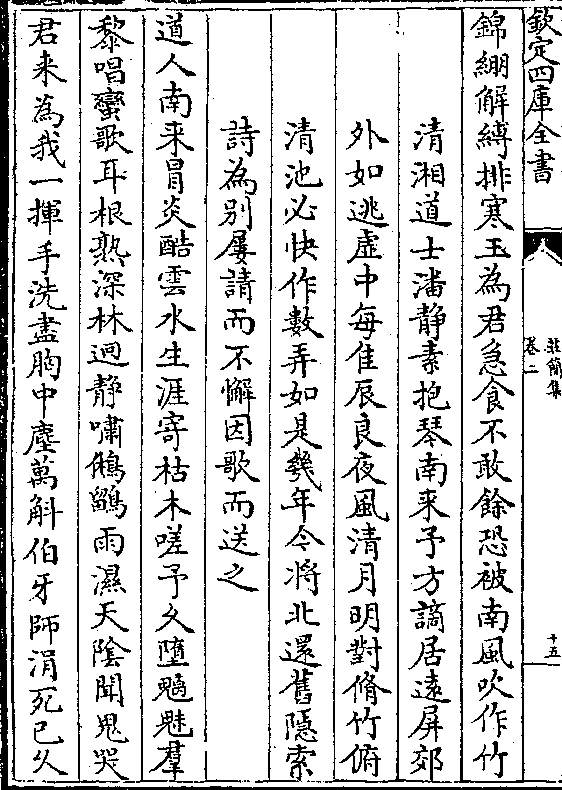 欽定四庫全書
莊簡集
卷二
十五
錦綳解縛排寒玉為君急食不敢餘恐被南風吹作竹
清湘道士潘静素抱琴南来予方謫居逺屏郊
外如逃虚中每佳辰良夜風清月明對脩竹俯
清池必快作數弄如是幾年今將北還舊隠索
詩為别屢請而不懈因歌而送之
道人南来冒炎酷雲水生涯寄枯木嗟予久墮魑魅羣
黎唱蠻歌耳根熟深林迥静嘯鵂鶹雨濕天隂聞鬼哭
君来為我一揮手洗盡胸中塵萬斛伯牙師涓死已久